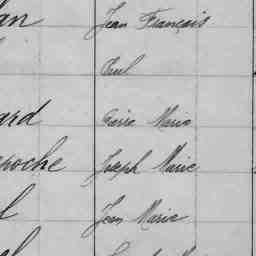 Jean François
Paul
ard Pierre Marie
roche Joseph Marie
Jean Marie